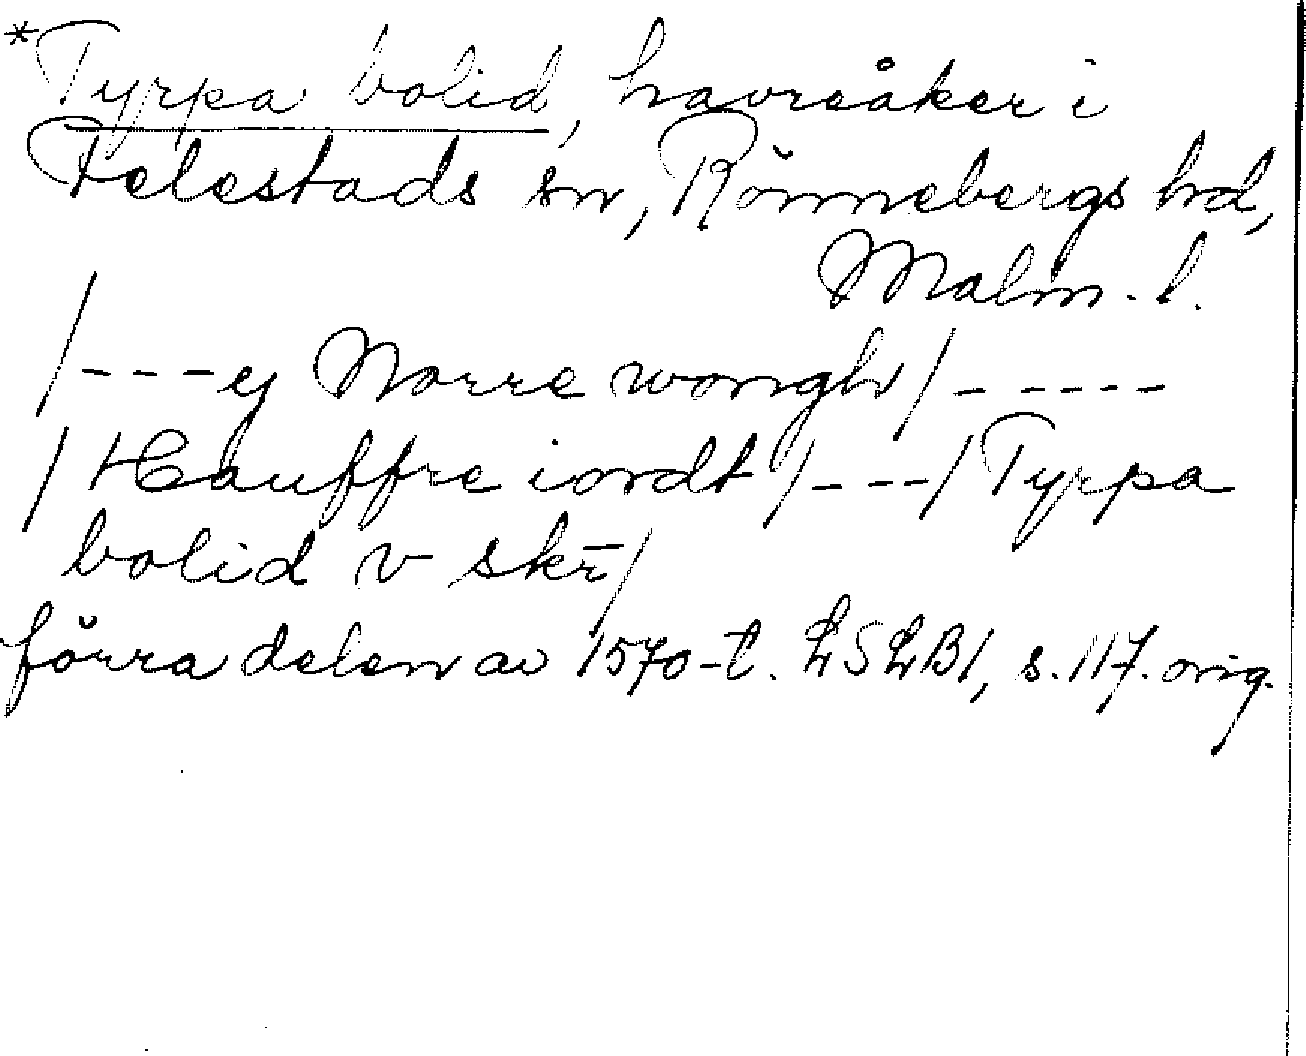 *Tyrpa bolid, havreåker i
Felestads sn, Rönnebergs hd,
Malm. l.
/---ej Norre wongh/-----
/Hauffre iordt/---/Tyrpa
bolid v skr̄/
förra delen av 1570-t. LSLB1, s. 117. orig.